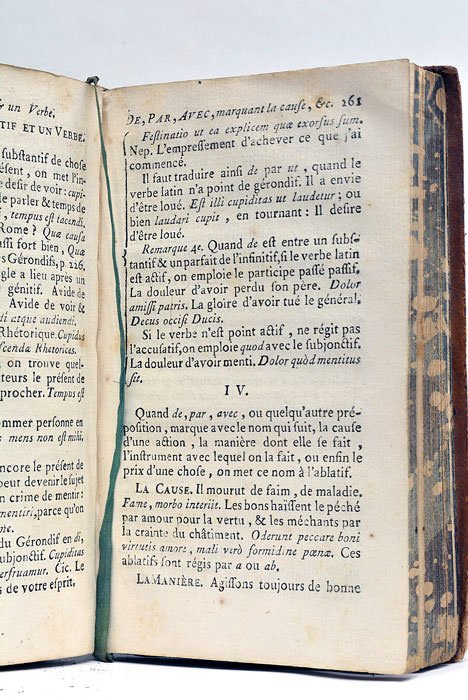 & un Verbe.
TIF ET UN VERBE.
substantif de chose
ésent, on met l'in-
e desir de voir : cupi-
de parler & temps de
, tempus est tacendi,
Rome ? Quæ causa
assi fort bien, Quæ
es Gérondifs, p. 226.
gle a lieu après un
génitif. Avide de
Avide de voir &
di atque audiendi.
Rhétorique. Cupidus
scendæ Rhetorices.
, on trouve quel-
teurs le présent de
procher. Tempus est
ommer personne en
s mens non est mihi.
ncore le présent de
peut devenir le sujet
n crime de mentir :
mentiri, parce qu'on
ne.
du Gérondif en di,
subjonctif. Cupiditas
erfruamur. Cic. Le
s de votre esprit,
DE, PAR, AVEC, marquant la cause, &c. 261
Festinatio ut ea explicem quæ exorsus sum.
Nep. L'empressement d'achever ce que j'ai
commencé.
Il faut traduire ainsi de par ut, quand le
verbe latin n'a point de gérondif. Il a envie
d'être loué. Est illi cupiditas ut laudetur ; ou
bien laudari cupit, en tournant : Il desire
d'être loué.
Remarque 4e. Quand de est entre un subs-
tantif & un parfait de l'infinitif, si le verbe latin
est actif, on emploie le participe passé passif.
La douleur d'avoir perdu son père. Dolor
amissi patris. La gloire d'avoir tué le général.
Decus occisi Ducis.
Si le verbe n'est point actif, ne régit pas
l'accusatif, on emploie quod avec le subjonctif.
La douleur d'avoir menti. Dolor quòd mentitus
sit.
IV.
Quand de, par, avec, ou quelqu'autre pré-
position, marque avec le nom qui suit, la cause
d'une action, la manière dont elle se fait,
l'instrument avec lequel on la fait, ou enfin le
prix d'une chose, on met ce nom à l'ablatif.
LA CAUSE. Il mourut de faim, de maladie.
Fame, morbo interiit. Les bons haïssent le péché
par amour pour la vertu, & les méchants par
la crainte du châtiment. Oderunt peccare boni
virtutis amore, mali verò formidine pœnæ. Ces
ablatifs sont régis par a ou ab.
LA MANIÈRE. Agissons toujours de bonne